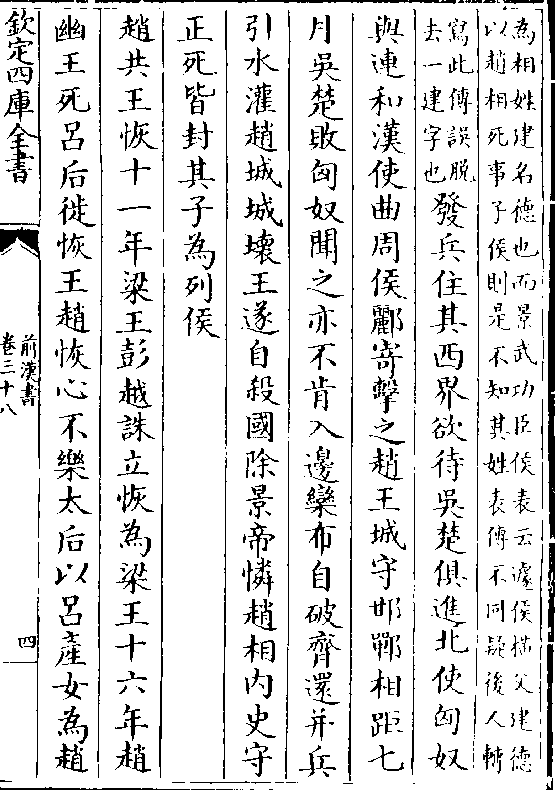 為相姓建名德也而景武功臣侯表云遽侯橫父建德
以趙相死事子侯則是不知其姓表傳不同疑後人轉
寫此傳誤脱
去一建字也
發兵住其西界欲待吳楚俱進北使匈奴
與連和漢使曲周侯酈寄擊之趙王城守邯鄲相距七
月吳楚敗匈奴聞之亦不肯入邊欒布自破齊還并兵
引水灌趙城城壞王遂自殺國除景帝憐趙相內史守
正死皆封其子為列侯
趙共王恢十一年梁王彭越誅立恢為梁王十六年趙
幽王死呂后徙恢王趙恢心不樂太后以呂產女為趙
欽定四庫全書
前漢書
卷三十八
四